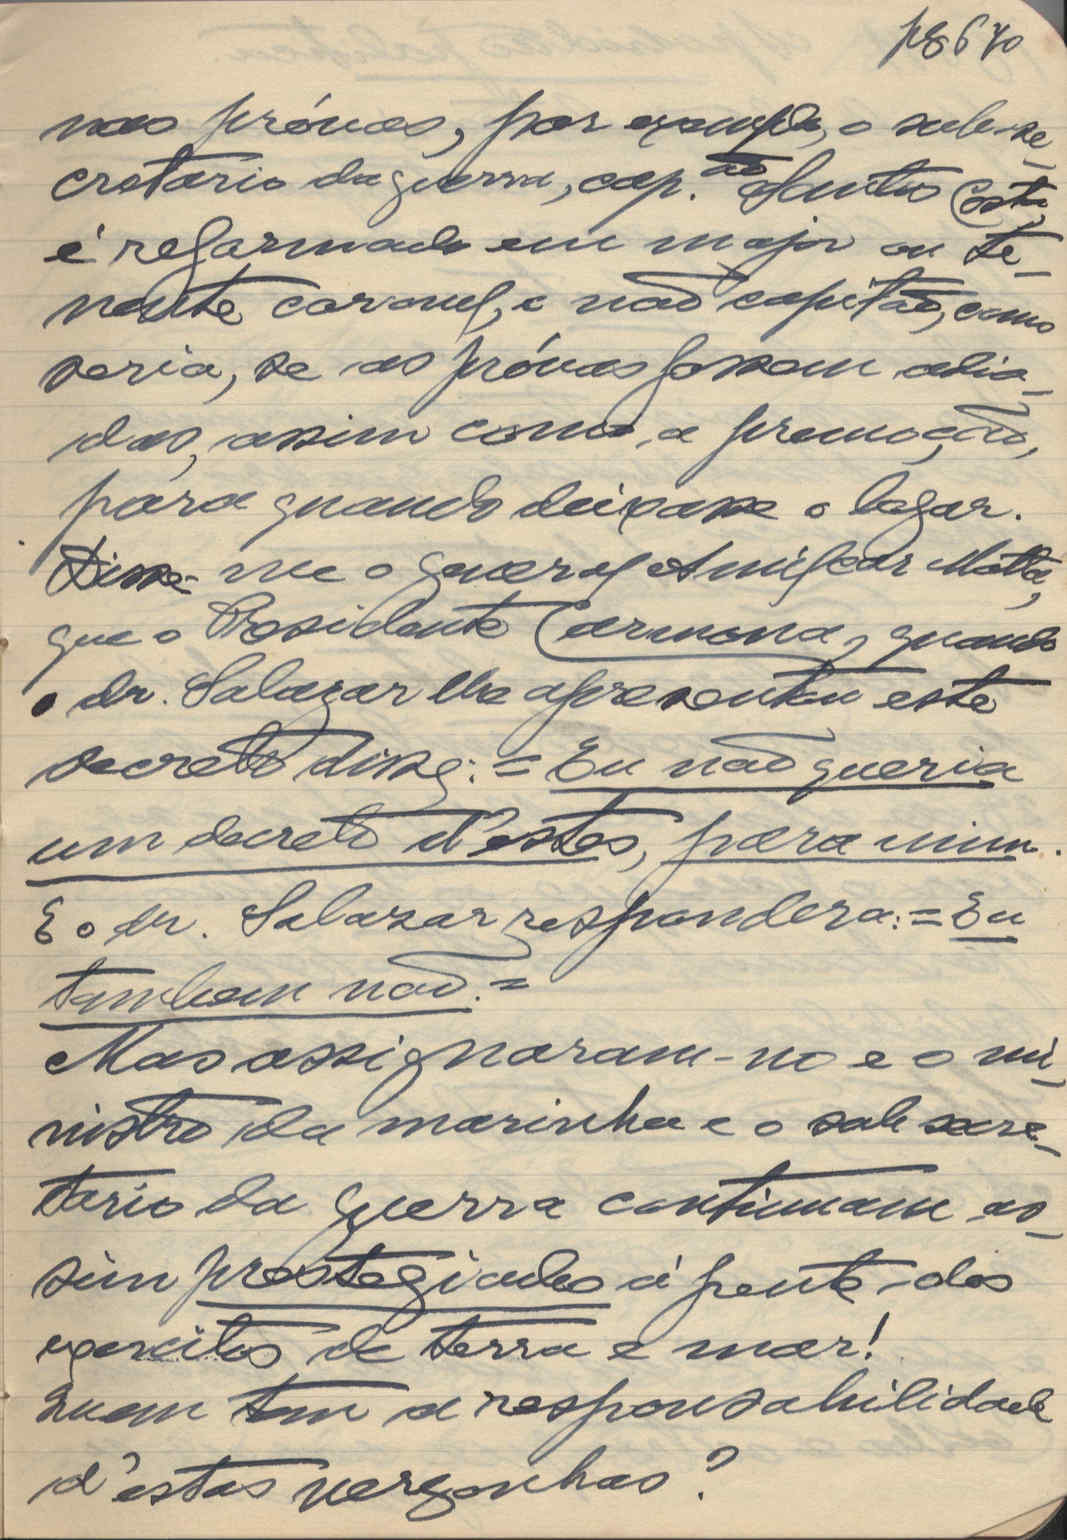 pg 670
nas próvas, por exemplo, o sub-se-
cretario da guerra, cap.ão Santos Costa,
é reformado em major ou te-
nente coronel, e não capitão, como
seria, se as próvas fossem adia-
das, assim como, a promoção,
para quando deixasse o logar.
Disse-me o general Amilcar Motta,
que o Presidente Carmona, quando
o dr. Salazar lhe apresentou este
decreto disse: = Eu não queria
um decreto d'estes, para mim.
E o dr. Salazar respondera: = Eu
tambem não. =
Mas assignaram-no e o mi-
nistro da marinha e o sub secre-
tario da guerra continuam as-
sim prestegiados á frente dos
exercitos de terra e mar!
Quem tem a responsabilidade
d'estas vergonhas?